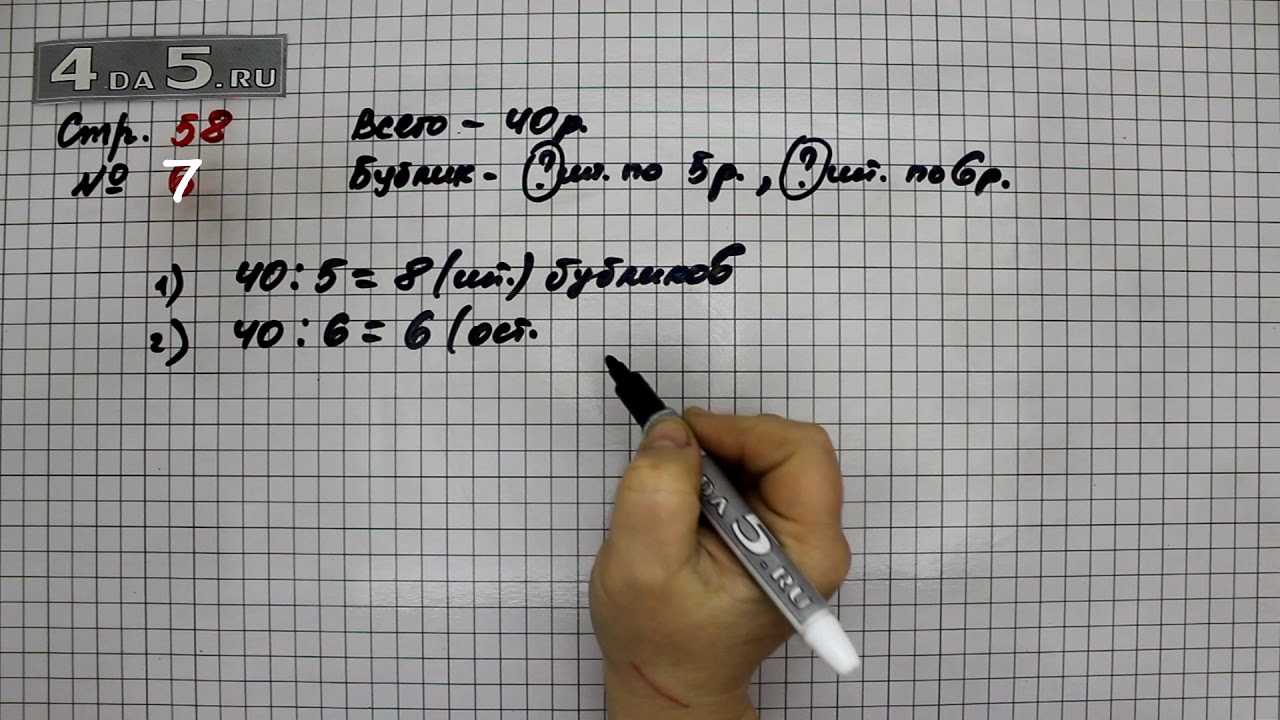 4DA5.RU
Стр. 58
№ 7
Всего - 40р.
Бублик - ? шт. по 5р., ? шт. по 6р.
1) 40 : 5 = 8 (шт.) бубликов
2) 40 : 6 = 6 (ост.
DA 5.RU